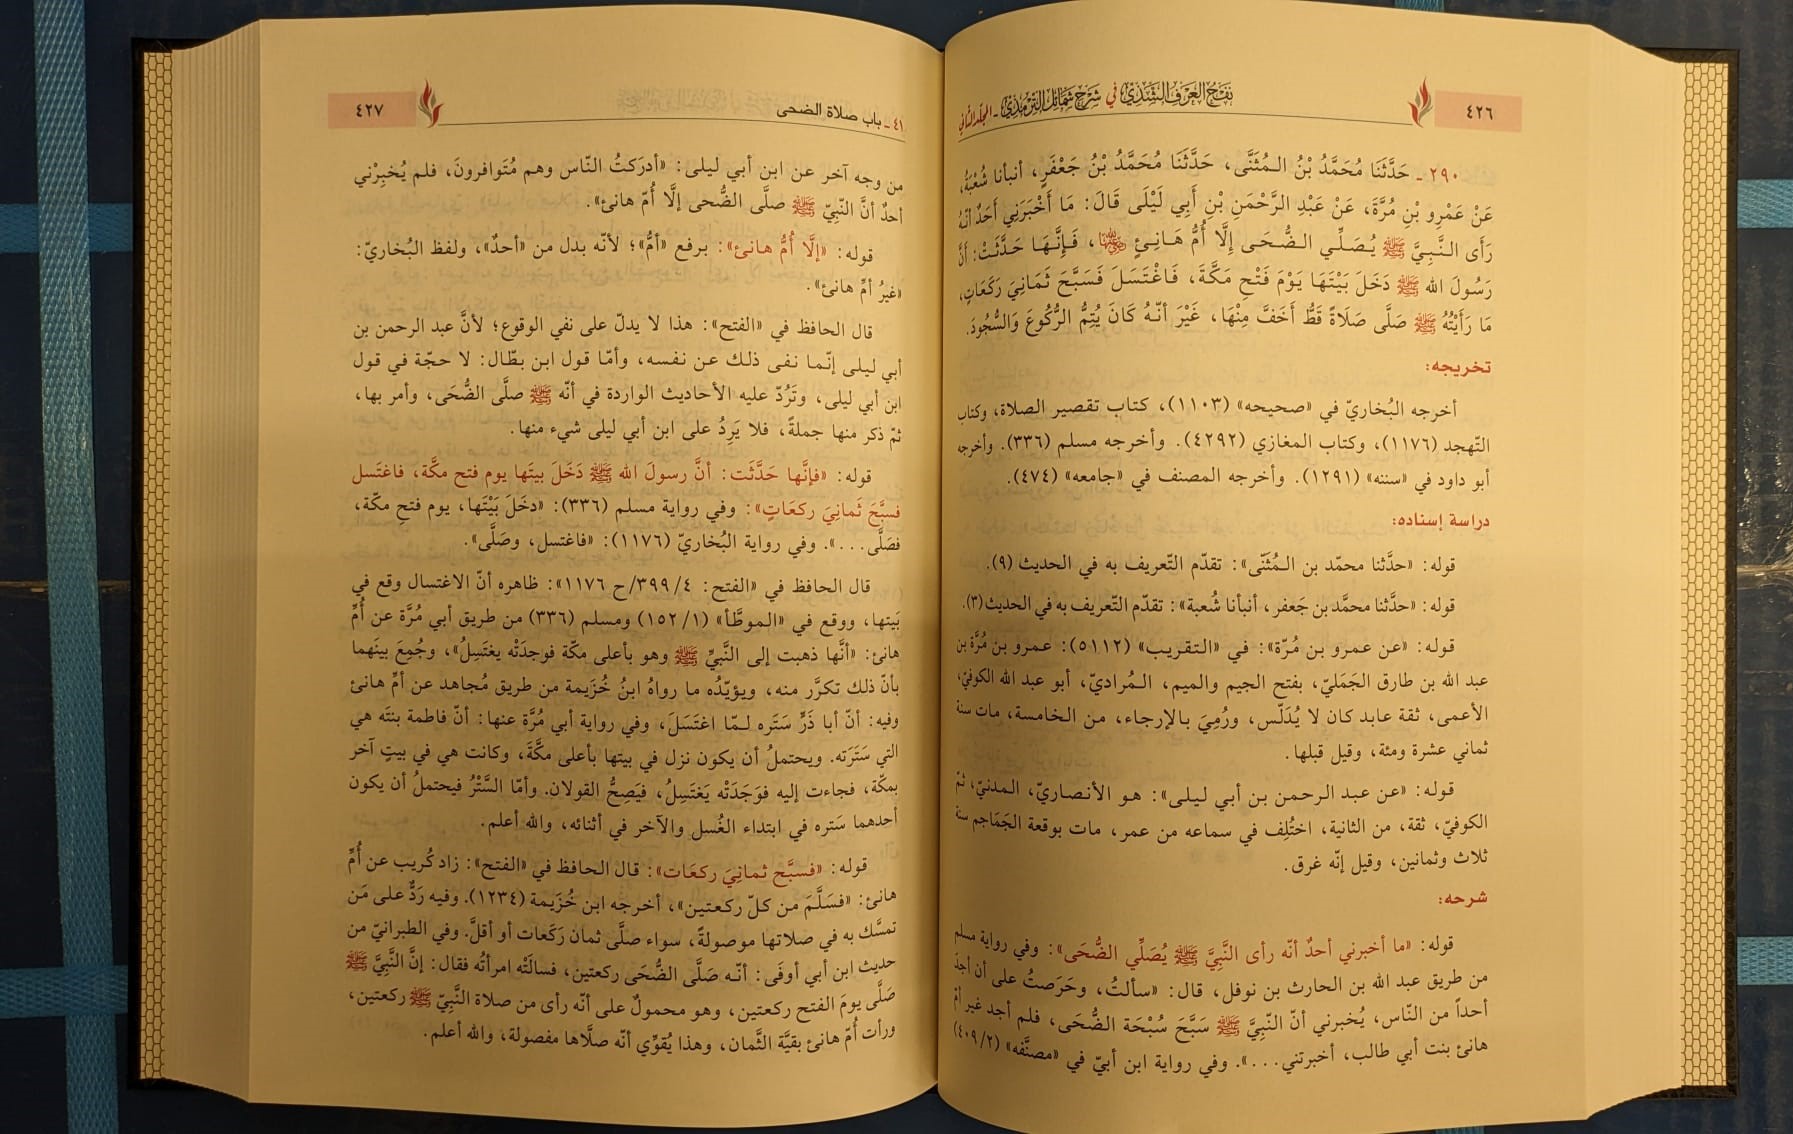 ٤٢٦
نفح العرف الشذي في شرح شمائل الترمذي - المجلد الثاني
٢٩٠ ـ حَدَّثَنَا مُحَمَّدُ بْنُ الـمُثَنَّى، حَدَّثَنَا مُحَمَّدُ بْنُ جَعْفَرٍ، أنبأنا شُعْبَةُ،
عَنْ عَمْرِو بْنِ مُرَّةَ، عَنْ عَبْدِ الرَّحْمَنِ بْنِ أَبِي لَيْلَى قَالَ: مَا أَخْبَرَنِي أَحَدٌ أنَّهُ
رَأَى النَّبِيَّ ﷺ يُصَلِّي الضُّحَى إِلَّا أُمُّ هَانِئٍ رضي الله عنها، فَإِنَّهَا حَدَّثَتْ: أَنَّ
رَسُولَ الله ﷺ دَخَلَ بَيْتَهَا يَوْمَ فَتْحِ مَكَّةَ، فَاغْتَسَلَ فَسَبَّحَ ثَمَانِيَ رَكَعَاتٍ،
مَا رَأَيْتُهُ ﷺ صَلَّى صَلَاةً قَطُّ أَخَفَّ مِنْهَا، غَيْرَ أنَّهُ كَانَ يُتِمُّ الرُّكُوعَ وَالسُّجُودَ.
تخريجه:
أخرجه البُخاريّ في «صحيحه» (١١٠٣)، كتاب تقصير الصلاة، وكتاب
التّهجد (١١٧٦)، وكتاب المغازي (٤٢٩٢). وأخرجه مسلم (٣٣٦). وأخرجه
أبو داود في «سننه» (١٢٩١). وأخرجه المصنف في «جامعه» (٤٧٤).
دراسة إسناده:
قوله: «حدَّثنا محمّد بن الـمُثَنّى»: تقدّم التّعريف به في الحديث (٩).
قوله: «حدَّثنا محمَّد بن جَعفر، أنبأنا شُعبة»: تقدّم التّعريف به في الحديث (٣).
قوله: «عن عمرو بن مُرّة»: في «التقريب» (٥١١٢): عمرو بن مُرَّة بن
عبد الله بن طارق الجَمَليّ، بفتح الجيم والميم، الـمُراديّ، أبو عبد الله الكوفيّ،
الأعمى، ثقة عابد كان لا يُدَلّس، ورُمِيَ بالإرجاء، من الخامسة، مات سنة
ثماني عشرة ومئة، وقيل قبلها.
قوله: «عن عبد الرحمن بن أبي ليلى»: هو الأنصاريّ، المدنيّ، ثمّ
الكوفيّ، ثقة، من الثانية، اختُلِف في سماعه من عمر، مات بوقعة الجَمَاجم سنة
ثلاث وثمانين، وقيل إنّه غرق.
شرحه:
قوله: «ما أخبرني أحدٌ أنّه رأى النَّبِيَّ ﷺ يُصَلِّي الضُّحَى»: وفي رواية مسلم
من طريق عبد الله بن الحارث بن نوفل، قال: «سألتُ، وحَرَصتُ على أن أجدَ
أحداً من النّاس، يُخبرني أنّ النّبِيَّ ﷺ سَبَّحَ سُبْحَة الضُّحَى، فلم أجد غير أمّ
هانئ بنت أبي طالب، أخبرتني...». وفي رواية ابن أبيّ في «مصنَّفه» (٤٠٩/٢)
٤١ ـ باب صلاة الضحى
٤٢٧
من وجه آخر عن ابن أبي ليلى: «أدرَكتُ النّاس وهم مُتَوافرونَ، فلم يُخبِرْني
أحدٌ أنَّ النَّبِيّ ﷺ صلَّى الضُّحى إلَّا أُمّ هانئ».
قوله: «إلَّا أُمُّ هانئ»: برفع «أمُّ»؛ لأنّه بدل من «أحدٌ»، ولفظ البُخاريّ:
«غيرُ أمِّ هانئ».
قال الحافظ في «الفتح»: هذا لا يدلّ على نفي الوقوع؛ لأنَّ عبد الرحمن بن
أبي ليلى إنّما نفى ذلك عن نفسه، وأمّا قول ابن بطّال: لا حجّة في قول
ابن أبي ليلى، وتَرُدّ عليه الأحاديث الواردة في أنّه ﷺ صلَّى الضُّحَى، وأمر بها،
ثمّ ذكر منها جملةً، فلا يَرِدُ على ابن أبي ليلى شيء منها.
قوله: «فإنَّها حَدَّثَت: أنَّ رسولَ الله ﷺ دَخَلَ بيتَها يوم فتح مكَّة، فاغتَسل
فسبَّحَ ثَمانِيَ ركعَاتٍ»: وفي رواية مسلم (٣٣٦): «دخَلَ بَيْتَها، يوم فتحِ مكّة،
فصَلَّى...». وفي رواية البُخاريّ (١١٧٦): «فاغتسل، وصَلَّى».
قال الحافظ في «الفتح: ٣٩٩/٤/ح ١١٧٦»: ظاهره أنّ الاغتسال وقع في
بَيتها، ووقع في «الموطَّأ» (١٥٢/١) ومسلم (٣٣٦) من طريق أبي مُرَّة عن أُمِّ
هانئ: «أنَّها ذهبت إلى النَّبيِّ ﷺ وهو بأعلى مكّة فوجدَتْه يغتَسِلُ»، وجُمِعَ بينَهما
بأنّ ذلك تكرَّر منه، ويؤيّدُه ما رواهُ ابنُ خُزَيمة من طريق مُجاهد عن أمِّ هانئ
وفيه: أنّ أبا ذَرٍّ سَتَره لـمّا اغتَسَلَ، وفي رواية أبي مُرَّة عنها: أنّ فاطمة بنتَه هي
التي سَتَرَته. ويحتملُ أن يكون نزل في بيتها بأعلى مكَّةَ، وكانت هي في بيتٍ آخر
بمكّة، فجاءت إليه فوَجَدَتْه يَغتَسِلُ، فيَصِحُّ القولان. وأمّا السَّتْرُ فيحتملُ أن يكون
أحدهما سَتره في ابتداء الغُسل والآخر في أثنائه، والله أعلم.
قوله: «فسبَّح ثمانِيَ ركعَات»: قال الحافظ في «الفتح»: زاد كُريب عن أُمِّ
هانئ: «فسَلَّمَ من كلّ ركعتين»، أخرجه ابن خُزَيمة (١٢٣٤). وفيه رَدٌّ على مَن
تمسَّك به في صلاتها موصولةً، سواء صلَّى ثمان رَكَعات أو أقلَّ. وفي الطبرانيّ من
حديث ابن أبي أوفَى: أنّه صَلَّى الضُّحَى ركعتين، فسالَتْه امرأتُه فقال: إنَّ النَّبِيَّ ﷺ
صَلَّى يومَ الفتح ركعتين، وهو محمولٌ على أنّه رأى من صلاة النَّبِيّ ﷺ ركعتين،
ورأت أُمّ هانئ بقيَّة الثَّمان، وهذا يُقوِّي أنّه صلَّاها مفصولة، والله أعلم.